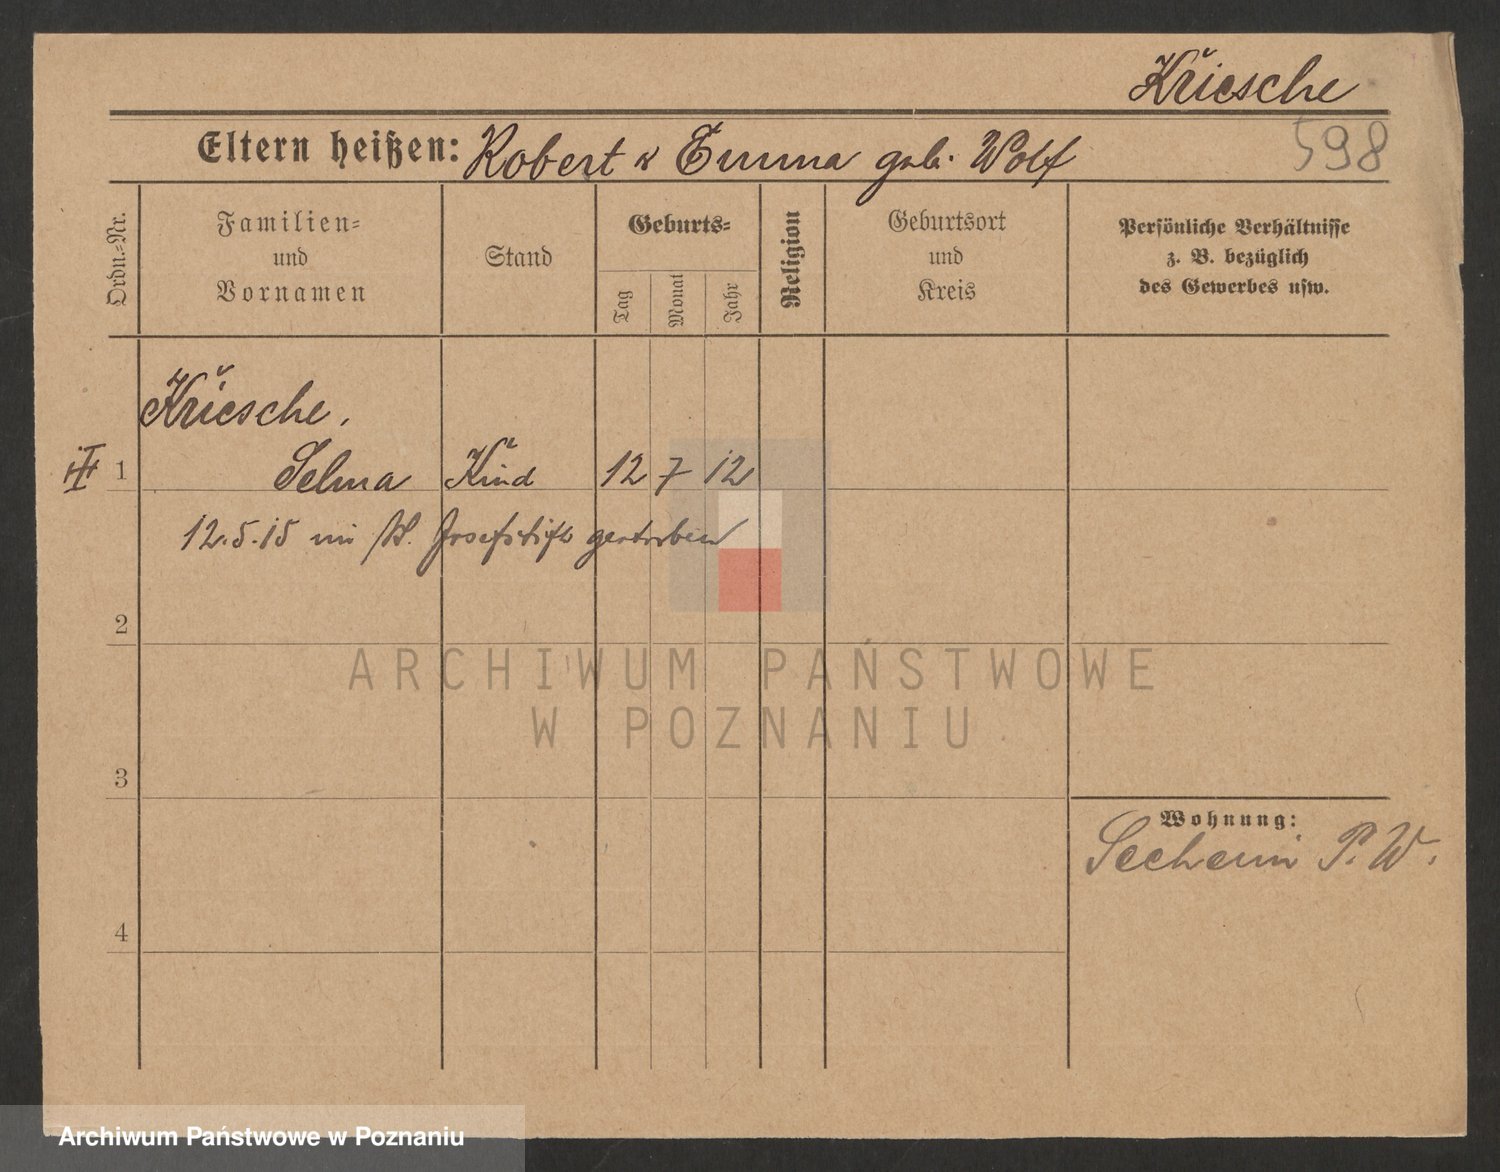 Kriesche
Eltern heißen: Robert & Emma geb. Wolf
598
Ordn.-Nr.
Familien-
und
Vornamen
Stand
Geburts-
Tag
Monat
Jahr
Religion
Geburtsort
und
Kreis
Persönliche Verhältnisse
z. B. bezüglich
des Gewerbes usw.
Kriesche,
1 Selma Kind 12 7 12
12.5.15 im St. Josefstift gestorben
2
ARCHIWUM PAŃSTWOWE
W POZNANIU
3
Wohnung:
P. W.
4
Archiwum Państwowe w Poznaniu